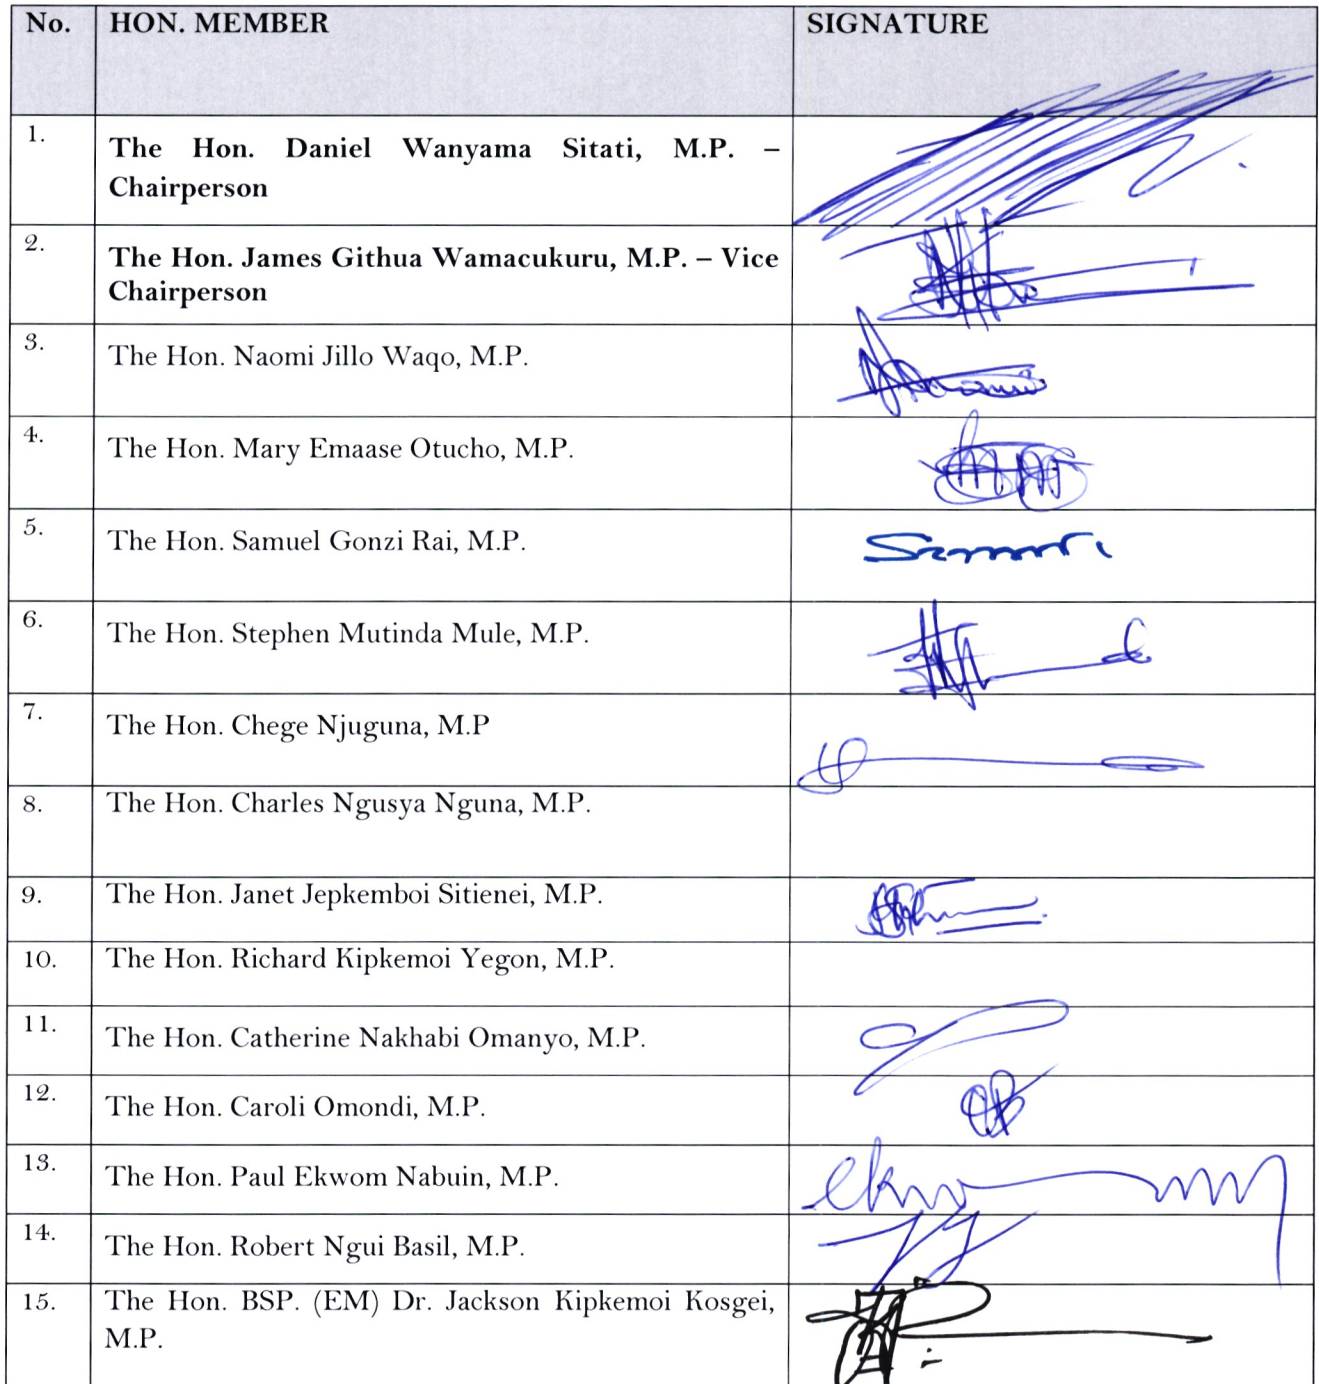 No. HON. MEMBER SIGNATURE
1. The Hon. Daniel Wanyama Sitati, M.P. –
Chairperson
2. The Hon. James Githua Wamacukuru, M.P. – Vice
Chairperson
3. The Hon. Naomi Jillo Waqo, M.P.
4. The Hon. Mary Emaase Otucho, M.P.
5. The Hon. Samuel Gonzi Rai, M.P.
6. The Hon. Stephen Mutinda Mule, M.P.
7. The Hon. Chege Njuguna, M.P
8. The Hon. Charles Ngusya Nguna, M.P.
9. The Hon. Janet Jepkemboi Sitienei, M.P.
10. The Hon. Richard Kipkemoi Yegon, M.P.
11. The Hon. Catherine Nakhabi Omanyo, M.P.
12. The Hon. Caroli Omondi, M.P.
13. The Hon. Paul Ekwom Nabuin, M.P.
14. The Hon. Robert Ngui Basil, M.P.
15. The Hon. BSP. (EM) Dr. Jackson Kipkemoi Kosgei,
M.P.